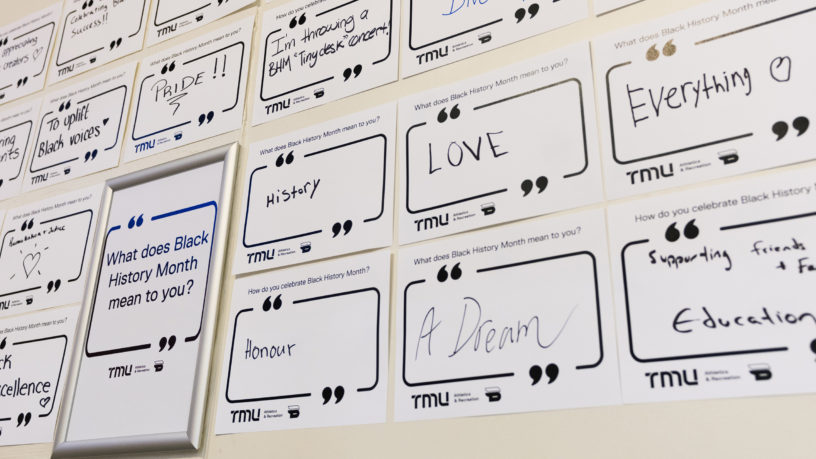 appreciating
creators ♡
Celebrating Black
Success!!
TMU
TMU
TMU
How do you celebrate Black
I'm throwing a
BHM "Tiny desk" concert!
TMU
TMU
What does Black History Month mean to you?
Everything ♡
TMU Athletics
& Recreation
What does Black History Month mean to you?
PRIDE!!
TMU
What does Black History Month mean to you?
LOVE
TMU Athletics
& Recreation
To uplift
Black voices ♥
TMU
What does Black History Month mean to you?
History
TMU Athletics
& Recreation
What does Black History Month mean to you?
+ Justice
TMU
What does Black
History Month
mean to you?
TMU Athletics
& Recreation
How do you celebrate Black History Month?
Honour
TMU Athletics
& Recreation
What does Black History Month mean to you?
A Dream
TMU Athletics
& Recreation
How do you celebrate Black History
Supporting friends
+ Fa
Education
TMU Athletics
& Recreation
History Month mean to you?
cellence
♡
TMU